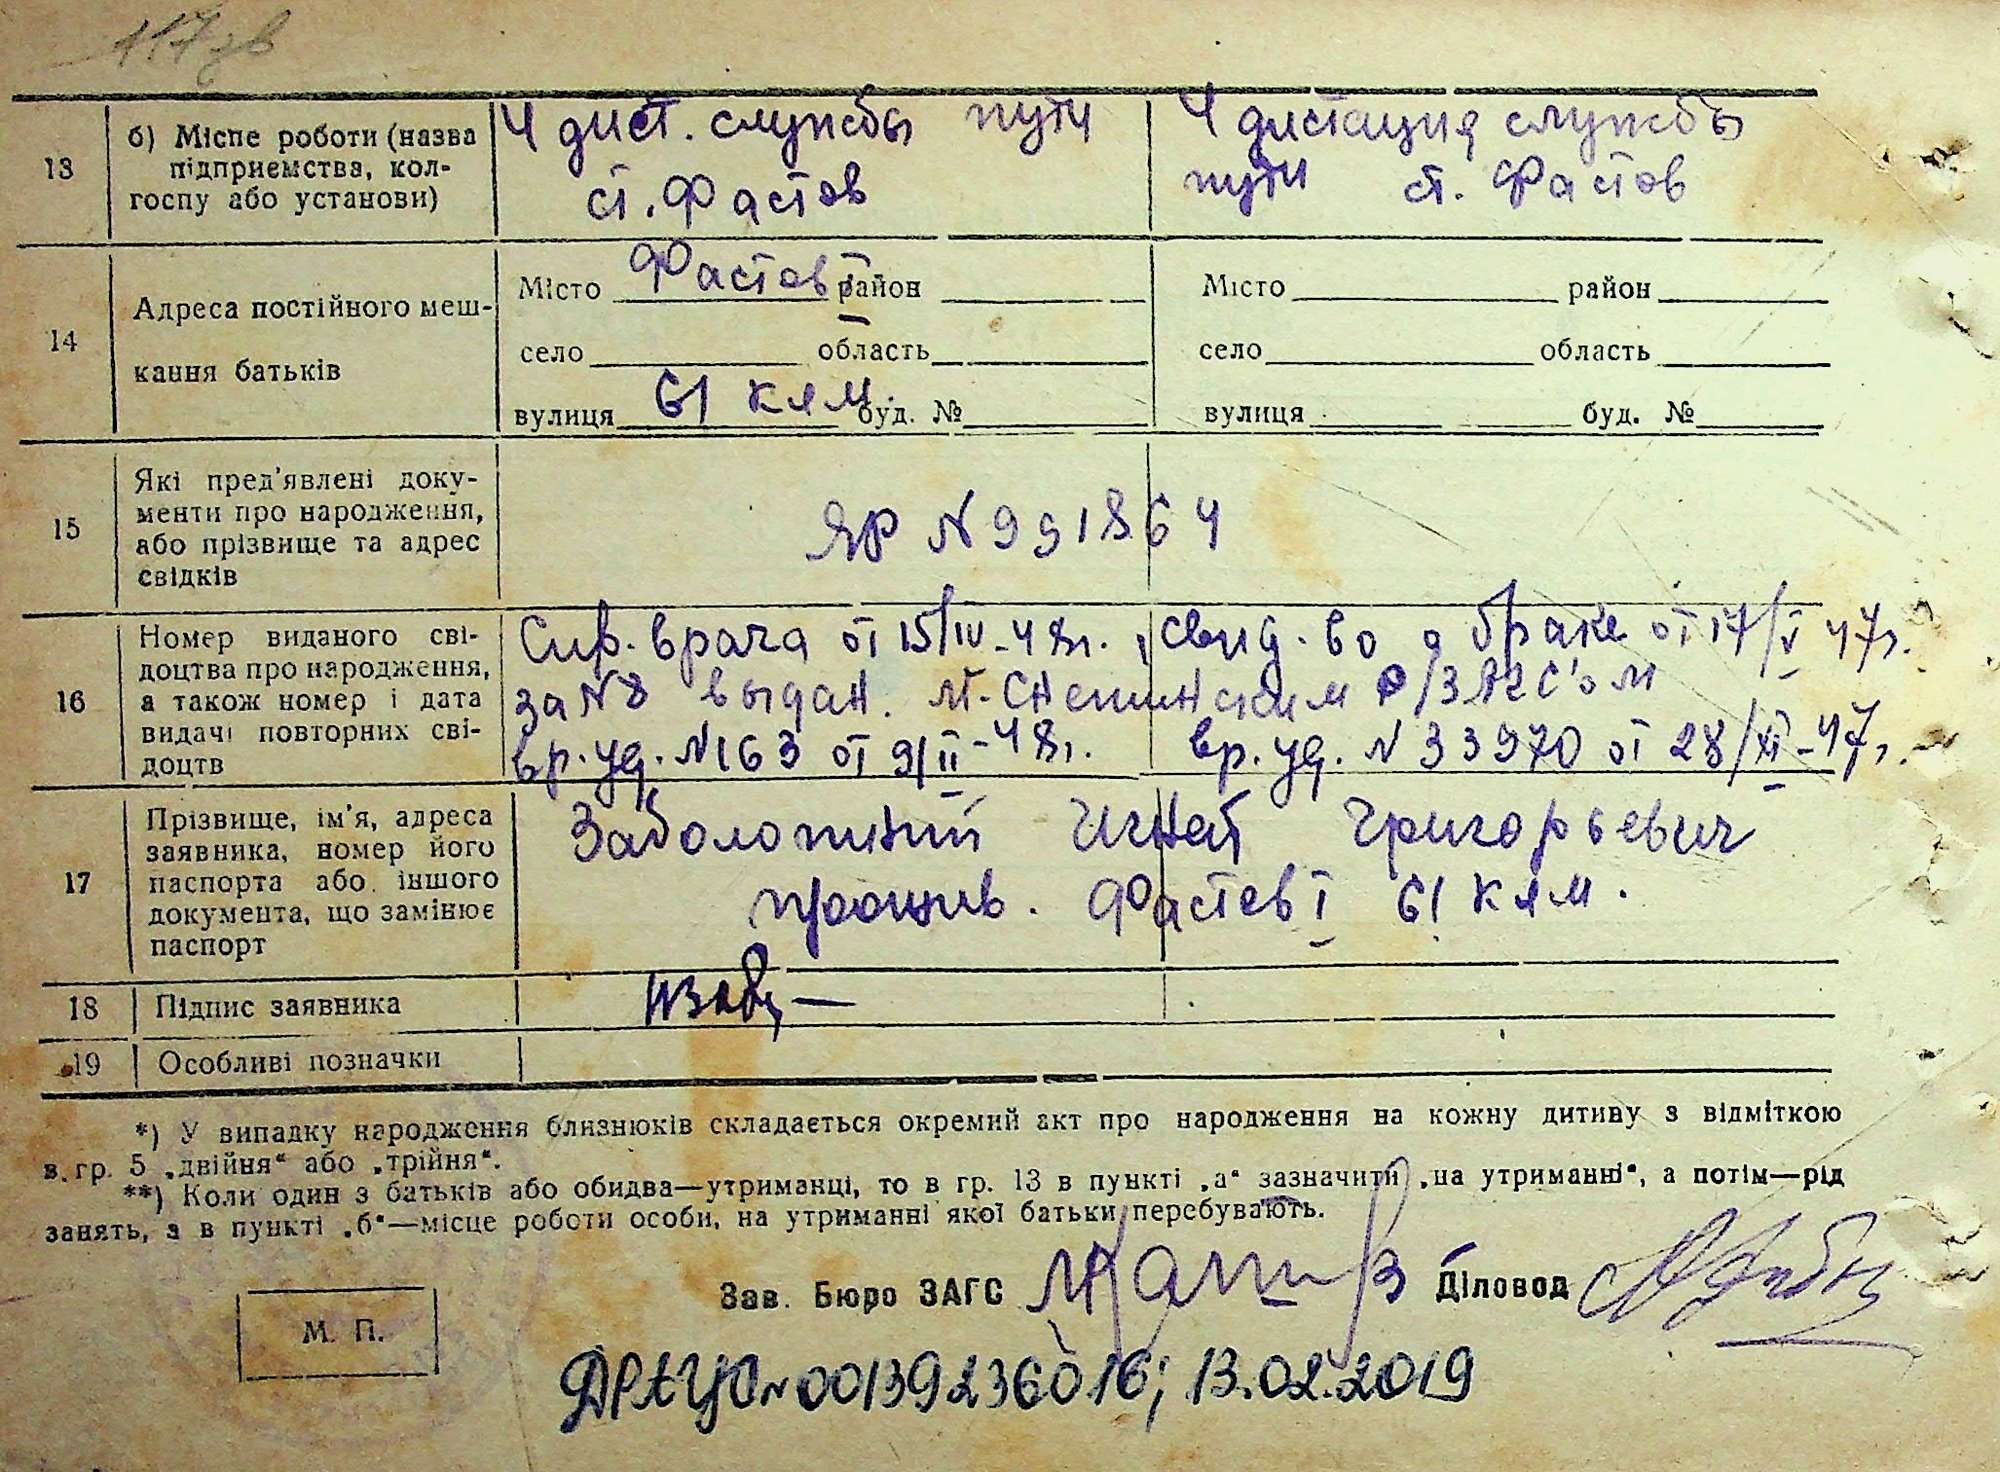 117 зв
13
б) Місце роботи (назва
підприємства, кол-
госпу або установи)
4 дист. службы пути
ст. Фастов
4 дистация службы
пути ст. Фастов
14
Адреса постійного меш-
кання батьків
Місто Фастов I район
село область
вулиця 61 клм. буд. №
Місто район
село область
вулиця буд. №
15
Які пред'явлені доку-
менти про народження,
або прізвище та адрес
свідків
ЯР N 991864
16
Номер виданого сві-
доцтва про народження,
а також номер і дата
видачі повторних сві-
доцтв
Спр. врача от 15/IV-48г., свид-во о браке от 17/V 47г.
за N8 выдан. М- Р/ЗАГС'ом
вр. уд. N163 от 9/II-48г. вр. уд. N 33970 от 28/XI-47г.
17
Прізвище, ім'я, адреса
заявника, номер його
паспорта або іншого
документа, що замінює
паспорт
Заболотний Игнат Григорьевич
прожив. Фастов I 61 клм.
18
Підпис заявника
19
Особливі позначки
*) У випадку народження близнюків складається окремий акт про народження на кожну дитину з відміткою
в. гр. 5 „двійня“ або „трійня“.
**) Коли один з батьків або обидва—утриманці, то в гр. 13 в пункті „а“ зазначити „на утриманні“, а потім—рід
занять, а в пункті „б“—місце роботи особи, на утриманні якої батьки перебувають.
Зав. Бюро ЗАГС Діловод
М. П.
ДРАЦС N 00139236016; 13.02.2019